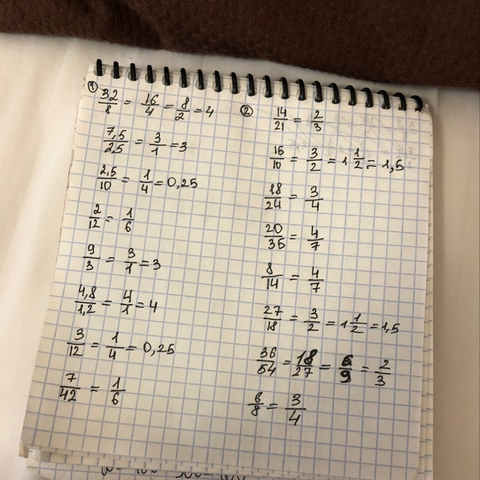 ① 32/8 = 16/4 = 8/2 = 4
7,5/2,5 = 3/1 = 3
2,5/10 = 1/4 = 0,25
2/12 = 1/6
9/3 = 3/1 = 3
4,8/1,2 = 4/1 = 4
3/12 = 1/4 = 0,25
7/42 = 1/6
② 14/21 = 2/3
15/10 = 3/2 = 1 1/2 = 1,5
18/24 = 3/4
20/35 = 4/7
8/14 = 4/7
27/18 = 3/2 = 1 1/2 = 1,5
36/54 = 18/27 = 6/9 = 2/3
6/8 = 3/4